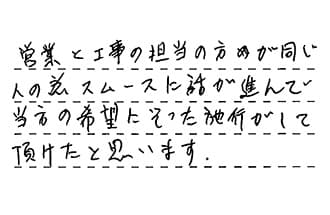 営業と工事の担当の方めが同じ
人の為スムースに話が進んで
当方の希望にそった施行がして
頂けたと思います.